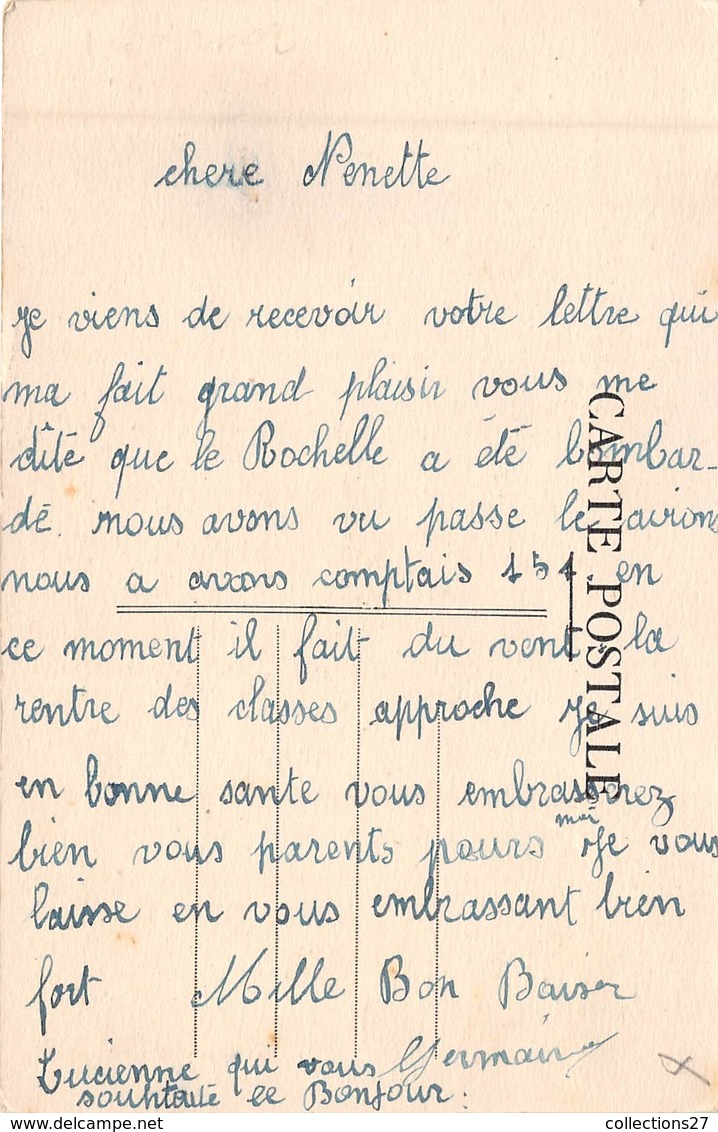 chere Nenette
Je viens de recevoir votre lettre qui
ma fait grand plaisir vous me
dîté que le Rochelle a été bombar-
dé. nous avons vu passe le avions
nous a avons comptais 151 en
ce moment il fait du vent. la
rentre des classes approche Je suis
en bonne sante vous embrasserez
bien vous parents pours moi Je vous
laisse en vous embrassant bien
fort Mille Bon Baiser
Lucienne qui vous Germain
souhtaite le Bonjour.
CARTE POSTALE
collections27